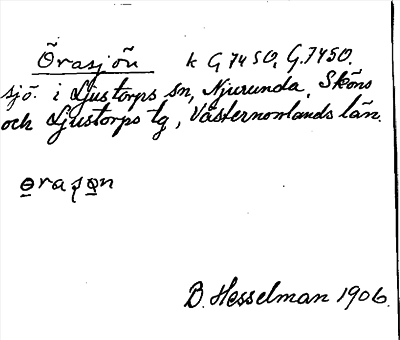 Örasjön k G 7450, G. 7450.
sjö. i Ljustorps sn, Njurunda, Sköns
och Ljustorps tg, Västernorrlands län.
ɵraʂɵn
B. Hesselman 1906.